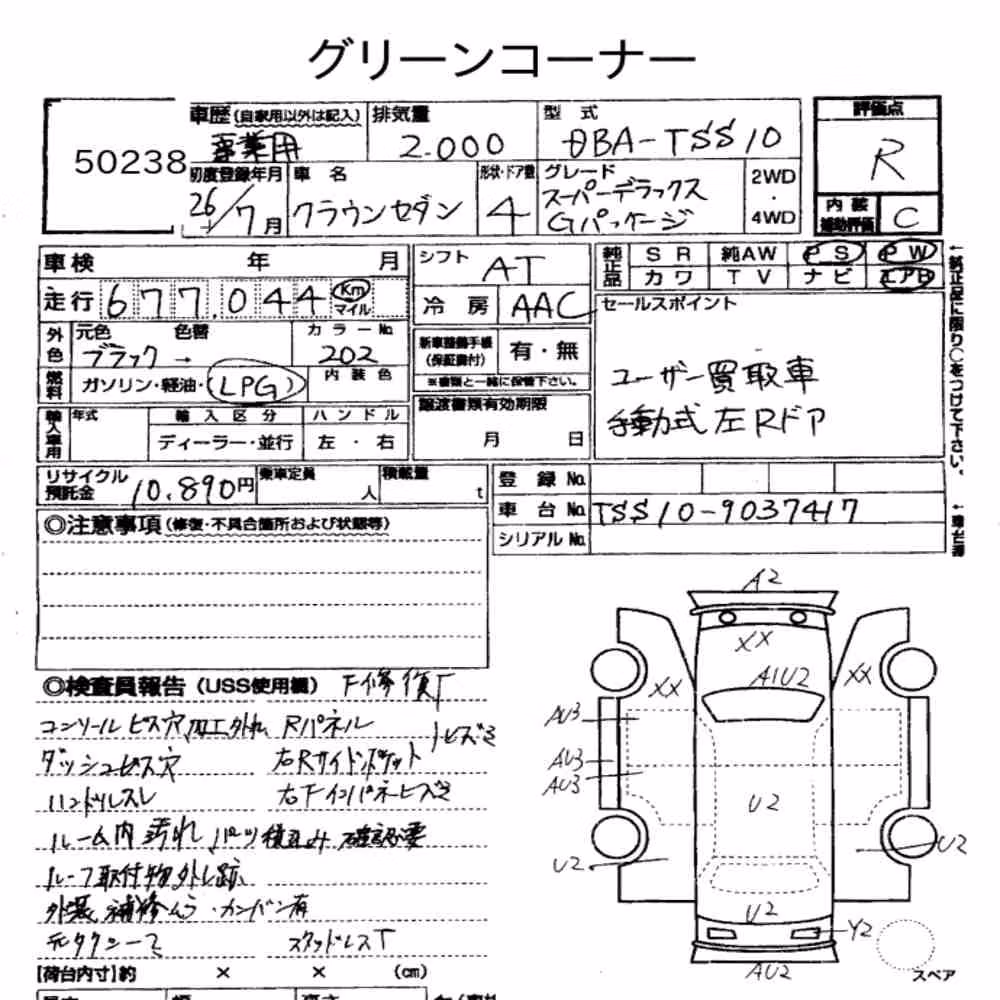 グリーンコーナー
50238
車歴(自家用以外は記入)
事業用
排気量
2.000
型 式
DBA-TSS10
評価点
R
初度登録年月
26/7月
車 名
クラウンセダン
形状・ドア数
4
グレード
スーパーデラックス
Gパッケージ
2WD
・
4WD
内 装
補助評価
C
車検 年 月
シフト
AT
純正品
SR 純AW PS PW
カワ TV ナビ エアB
走行 677.044 Km
マイル
冷 房
AAC
セールスポイント
ユーザー買取車
手動式左Rドア
外色
元色 色替
ブラック →
カラーNo
202
新車整備手帳
(保証書付)
有・無
※書類と一緒に保管下さい。
燃料
ガソリン・軽油・LPG
内 装 色
譲渡書類有効期限
月 日
輸入車用
年式
輸 入 区 分
ディーラー・並行
ハ ン ド ル
左 ・ 右
←純正品に限り○をつけて下さい。
リサイクル
預託金
10.890円
乗車定員
人
積載量
t
登 録 No.
車 台 No.
TSS10-9037417
シリアル No.
◎注意事項(修復・不具合箇所および状態等)
◎検査員報告(USS使用欄)
コンソールビス穴、加工外れ Rパネル
ダッシュビス穴 右Rサイドポケット
ハンドルスレ
ルーム内 汚れ パーツ積込み 確認必要
ルーフ取付物外し跡
外装 補修ムラ・カンバン有
元タクシー スタッドレスT
【荷台内寸】約 × × (cm)
A2
XX
A1U2
XX
XX
AU3
AU3
AU3
U2
U2
U2
U2
Y2
AU2
スペア